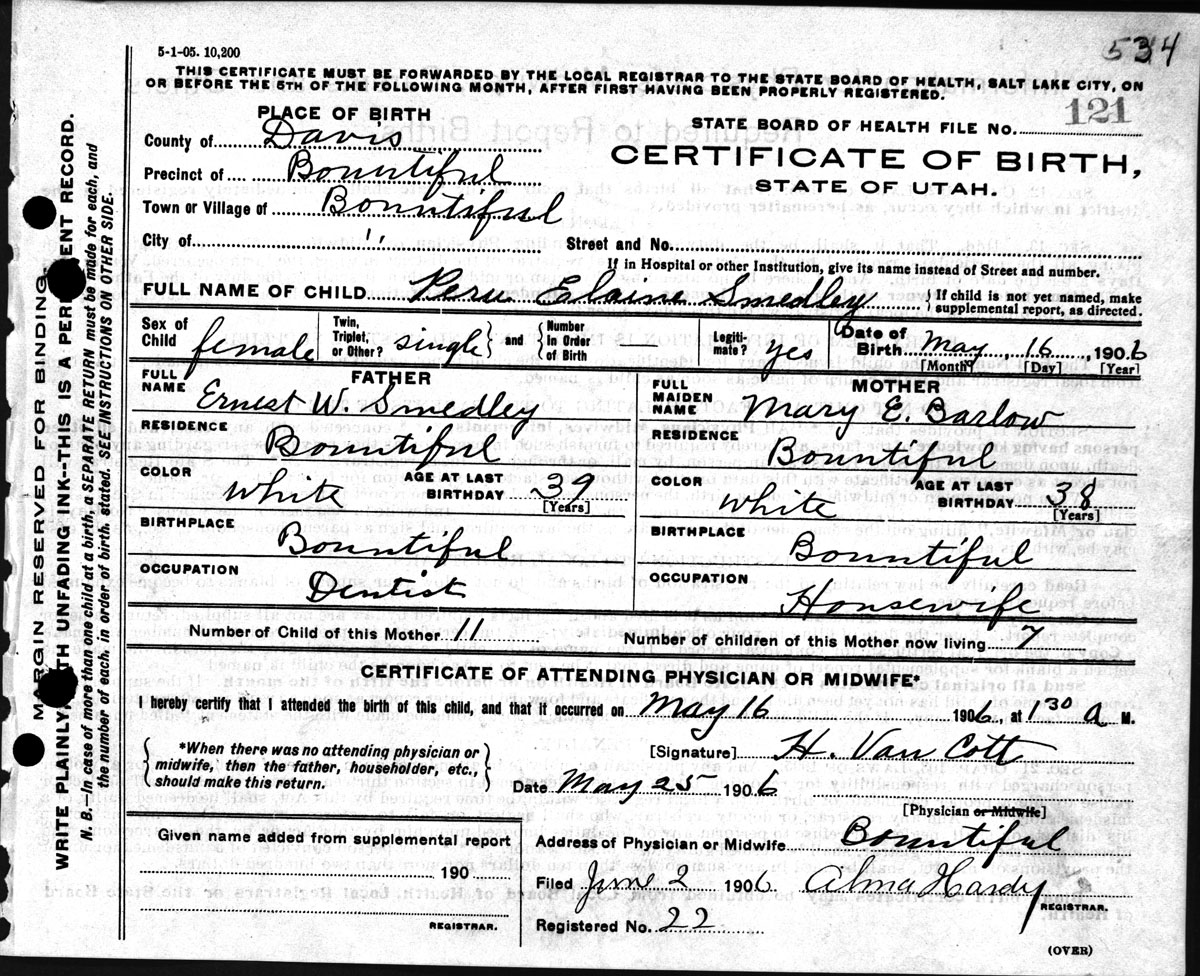 534
5-1-05. 10,200
THIS CERTIFICATE MUST BE FORWARDED BY THE LOCAL REGISTRAR TO THE STATE BOARD OF HEALTH, SALT LAKE CITY, ON
OR BEFORE THE 5TH OF THE FOLLOWING MONTH, AFTER FIRST HAVING BEEN PROPERLY REGISTERED.
PLACE OF BIRTH
County of Davis
Precinct of Bountiful
Town or Village of Bountiful
City of "
STATE BOARD OF HEALTH FILE NO. 121
CERTIFICATE OF BIRTH,
STATE OF UTAH.
Street and No.
If in Hospital or other Institution, give its name instead of Street and number.
FULL NAME OF CHILD Peru Elaine Smedley { If child is not yet named, make
supplemental report, as directed.
Sex of Child female Twin, Triplet, or Other? single } and { Number in Order of Birth Legiti-mate? yes Date of Birth May, 16, 1906
[Month] [Day] [Year]
FATHER
FULL NAME Ernest W. Smedley
RESIDENCE Bountiful
COLOR White AGE AT LAST BIRTHDAY 39
[Years]
BIRTHPLACE Bountiful
OCCUPATION Dentist
MOTHER
FULL MAIDEN NAME Mary E. Barlow
RESIDENCE Bountiful
COLOR White AGE AT LAST BIRTHDAY 38
[Years]
BIRTHPLACE Bountiful
OCCUPATION Housewife
Number of Child of this Mother 11 Number of children of this Mother now living 7
CERTIFICATE OF ATTENDING PHYSICIAN OR MIDWIFE*
I hereby certify that I attended the birth of this child, and that it occurred on May 16 1906, at 1 30 a M.
{ *When there was no attending physician or
midwife, then the father, householder, etc.,
should make this return. }
[Signature] H. Van Cott
Date May 25 1906
[Physician or Midwife]
Given name added from supplemental report
190
REGISTRAR.
Address of Physician or Midwife Bountiful
Filed June 2 1906 Alma Hardy
REGISTRAR.
Registered No. 22
(OVER)
MARGIN RESERVED FOR BINDING.
WRITE PLAINLY WITH UNFADING INK--THIS IS A PERMANENT RECORD.
N. B.--In case of more than one child at a birth, a SEPARATE RETURN must be made for each, and
the number of each, in order of birth, stated. SEE INSTRUCTIONS ON OTHER SIDE.